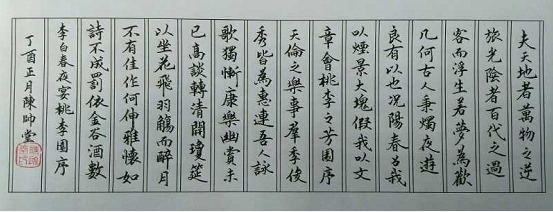 夫天地者萬物之逆
旅光陰者百代之過
客而浮生若夢為歡
几何古人秉燭夜遊
良有以也況陽春召我
以煙景大塊假我以文
章會桃李之芳園序
天倫之樂事羣季俊
秀皆為惠連吾人詠
歌獨慚康樂幽賞未
已高談轉清開瓊筵
以坐花飛羽觴而醉月
不有佳作何伸雅懷如
詩不成罰依金谷酒數
李白春夜宴桃李園序
丁酉正月陳帥